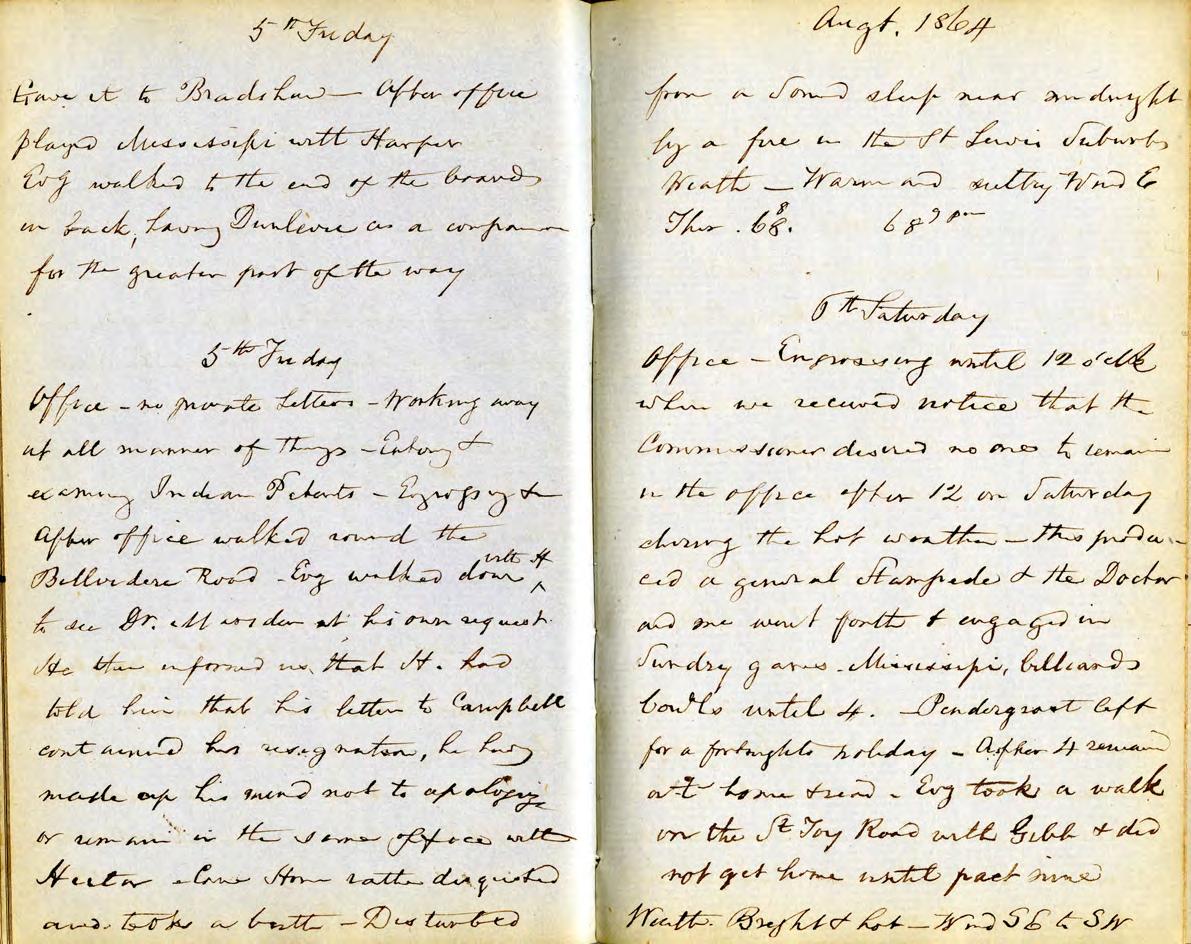 5th Friday
Gave it to Bradshaw — After office
played Mississipi with Harper
Evg walked to the end of the boards
in back, having Dunlevie as a companion
for the greater part of the way
5th Friday
Office – no private letters – Working away
at all manner of things – Entering &
examing Indian Patents – Engrossg &c
After office walked round the
Bellvidere Road – Evg walked down with H
to see Dr. Marsden at his own request.
He then informed us that H. had
told him that his letter to Campbell
contained his resignation, he havg
made up his mind not to apologize
or remain in the same office with
Hector – Came Home rather disgusted
and took a bath – Disturbed
Augt. 1864
from a sound sleep near midnight
by a fire in the St Lewis Suburbs
Weath – Warm and sultry Wind E
Ther . 68. 8 68 9 pm
6th Saturday
Office – Engrossing until 12 o'clk
when we received notice that the
Commissioner desired no ones to remain
in the office after 12 on Saturday
during the hot weather – this produ-
ced a general Stampede & the Doctor
and me went forth & engaged in
Sundry games – Mississipi, billiards
bowls until 4. – Pendergrast left
for a fortnights holiday – After 4 remaind
at home & read – Evg took a walk
on the St Foy Road with Gibb & did
not get home until past nine
Weath. Bright & hot – Wnd SE to SW